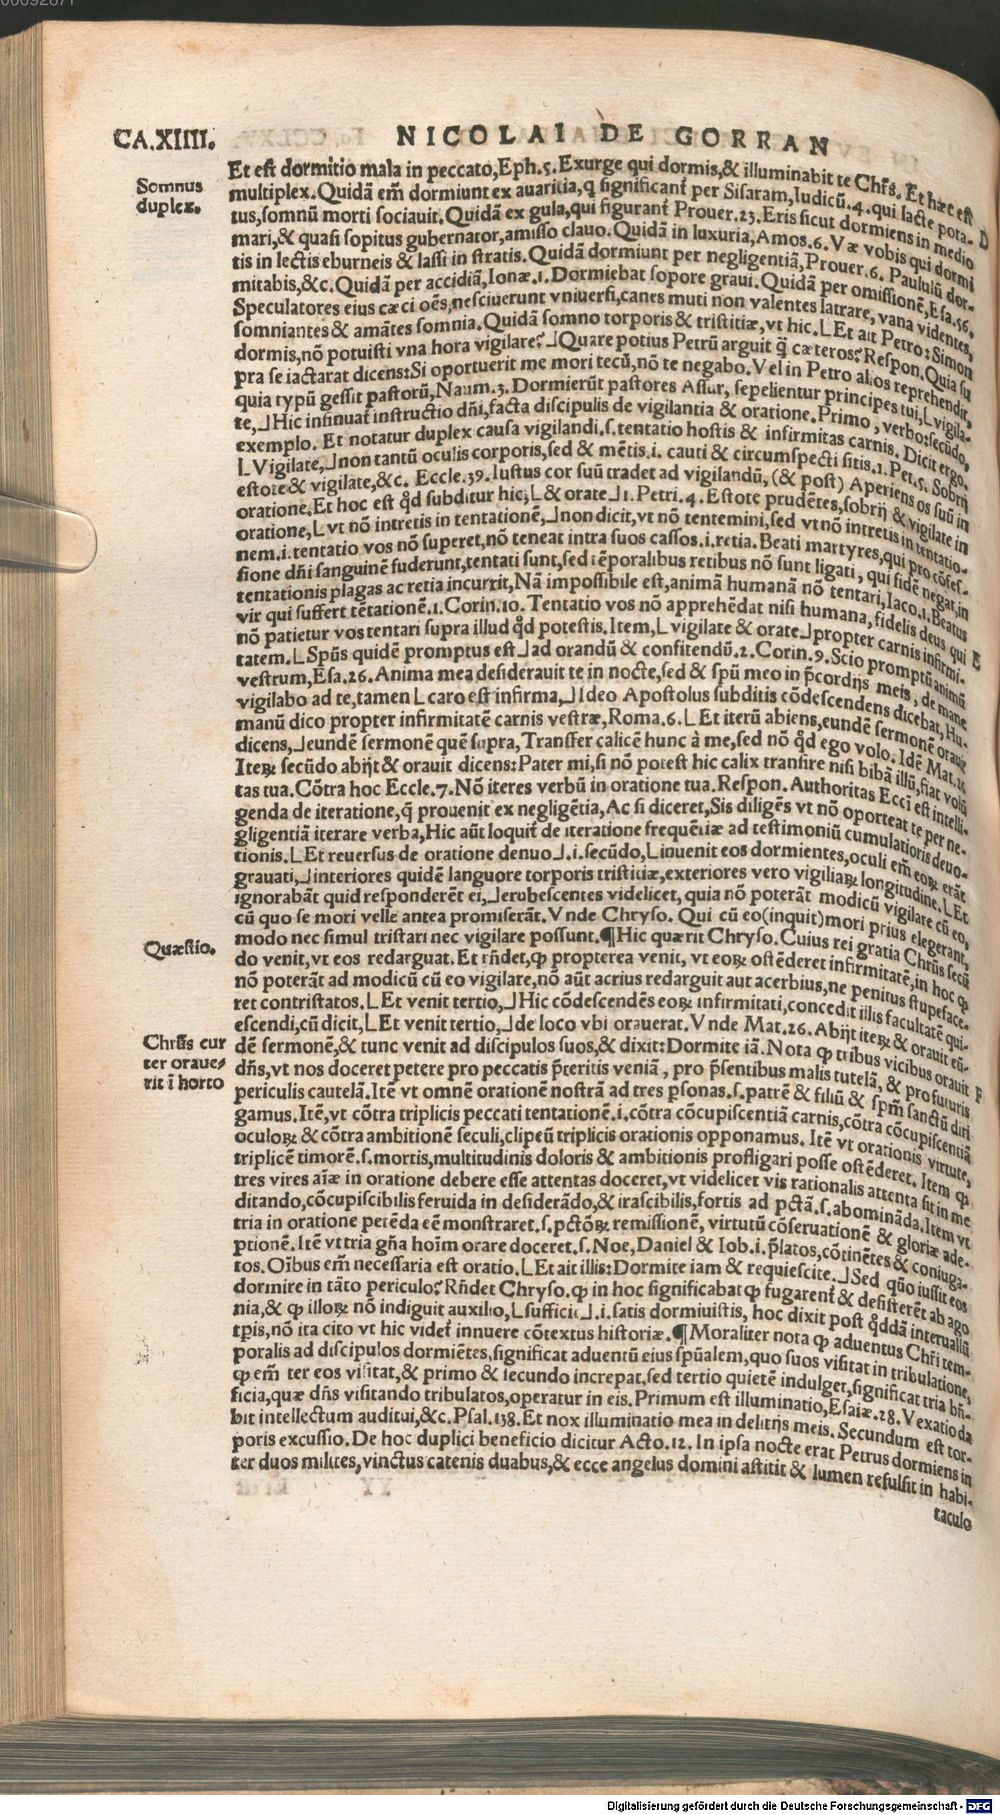 00092871
CA.XIIII.
NICOLAI DE GORRAN
Somnus
duplex.
Et est dormitio mala in peccato,Eph.5.Exurge qui dormis,& illuminabit te Chr̃s. Et hæc est
multiplex.Quidã em̃ dormiunt ex auaritia,q̃ significant̃ per Sisaram,Iudicũ.4.qui lacte pota-
tus,somnũ morti sociauit.Quidã ex gula,qui figurant̃ Prouer.23.Eris sicut dormiens in medio
D
mari,& quasi sopitus gubernator,amisso clauo.Quidã in luxuria,Amos.6.Væ vobis qui dormi
tis in lectis eburneis & lassi in stratis.Quidã dormiunt per negligentiã,Prouer.6. Paululũ dor-
mitabis,&c.Quidã per accidiã,Ionæ.1.Dormiebat sopore graui.Quidã per omissionẽ,Esa.56.
Speculatores eius cæci oẽs,nesciuerunt vniuersi,canes muti non valentes latrare, vana videntes,
somniantes & amãtes somnia.Quidã somno torporis & tristitiæ,vt hic.⌊Et ait Petro: Simon
dormis,nõ potuisti vna hora vigilare?⌋Quare potius Petrũ arguit q̃ cæteros? Respon. Quia su
pra se iactarat dicens:Si oportuerit me mori tecũ,nõ te negabo.Vel in Petro alios reprehendit,
quia typũ gessit pastorũ,Naum.3.Dormierũt pastores Assur, sepelientur principes tui,⌊vigila-
te,⌋Hic insinuat̃ instructio dñi,facta discipulis de vigilantia & oratione.Primo, verbo:secũdo,
exemplo. Et notatur duplex causa vigilandi.s.tentatio hostis & infirmitas carnis. Dicit ergo,
⌊Vigilate,⌋non tantũ oculis corporis,sed & mẽtis.i. cauti & circumspecti sitis.1.Pet.5. Sobrij
estote & vigilate,&c. Eccle.39.Iustus cor suũ tradet ad vigilandũ,(& post) Aperiens os suũ in
oratione.Et hoc est qđ subditur hic,⌊& orate⌋1.Petri.4.Estote prudẽtes,sobrij & vigilate in
oratione,⌊vt nõ intretis in tentationẽ,⌋non dicit,vt nõ tentemini,sed vt nõ intretis in tentatio-
nem.i.tentatio vos nõ superet,nõ teneat intra suos casses.i.retia.Beati martyres,qui pro cõfes-
sione dñi sanguinẽ fuderunt,tentati sunt,sed tẽporalibus retibus nõ sunt ligati, qui fidẽ negat,in
tentationis plagas ac retia incurrit,Nã impossibile est,animã humanã nõ tentari,Iaco.1.Beatus
vir qui suffert tẽtationẽ.1.Corin.10.Tentatio vos nõ apprehẽdat nisi humana,fidelis deus qui
E
nõ patietur vos tentari supra illud qđ potestis.Item,⌊vigilate & orate⌋propter carnis infirmi-
tatem.⌊Spũs quidẽ promptus est⌋ad orandũ & confitendũ.2.Corin.9.Scio promptũ animũ
vestrum,Esa.26.Anima mea desiderauit te in nocte,sed & spũ meo in p̃cordijs meis, de mane
vigilabo ad te,tamen⌊caro est infirma,⌋Ideo Apostolus subditis cõdescendens dicebat,Hu-
manũ dico propter infirmitatẽ carnis vestræ,Roma.6.⌊Et iterũ abiens,eundẽ sermonẽ orauit
dicens,⌋eundẽ sermonẽ quẽ supra,Transfer calicẽ hunc à me,sed nõ qđ ego volo. Idẽ Mat.26
Iteꝝ secũdo abijt & orauit dicens:Pater mi,si nõ potest hic calix transire nisi bibã illũ,fiat volũ
tas tua.Cõtra hoc Eccle.7.Nõ iteres verbũ in oratione tua.Respon.Authoritas Eccĩ est intelli-
genda de iteratione,q̃ prouenit ex negligẽtia,Ac si diceret,Sis diligẽs vt nõ oporteat te per ne-
gligentiã iterare verba,Hic aũt loquit̃ de iteratione frequẽtiæ ad testimoniũ cumulatioris deuo-
tionis.⌊Et reuersus de oratione denuo⌋.i.secũdo,⌊inuenit eos dormientes,oculi em̃ eoꝝ erãt
grauati,⌋interiores quidẽ languore torporis tristitiæ,exteriores vero vigiliaꝝ longitudine.⌊Et
ignorabãt quid responderẽt ei,⌋erubescentes videlicet, quia nõ poterãt modicũ vigilare cũ eo,
cũ quo se mori velle antea promiserãt.Vnde Chryso. Qui cũ eo(inquit)mori prius elegerant,
Quæstio.
modo nec simul tristari nec vigilare possunt.¶Hic quærit Chryso.Cuius rei gratia Chr̃us secũ
do venit,vt eos redarguat.Et rñdet,ꝙ propterea venit, vt eoꝝ ostẽderet infirmitatẽ,in hoc ꝙ
nõ poterãt ad modicũ cũ eo vigilare,nõ aũt acrius redarguit aut acerbius,ne penitus stupeface-
ret contristatos.⌊Et venit tertio,⌋Hic cõdescendẽs eoꝝ infirmitati,concedit illis facultatẽ qui-
escendi,cũ dicit,⌊Et venit tertio,⌋de loco vbi orauerat.Vnde Mat.26.Abijt iteꝝ & orauit eũ-
Chr̃us cur
ter oraue-
rit ĩ horto
dẽ sermonẽ,& tunc venit ad discipulos suos,& dixit:Dormite iã.Nota ꝙ tribus vicibus orauit
F
dñs,vt nos doceret petere pro peccatis p̃teritis veniã, pro p̃sentibus malis tutelã, & pro futuris
periculis cautelã.Itẽ vt omnẽ orationẽ nostrã ad tres p̃sonas.s.patrẽ & filiũ & spm̃ sanctũ diri
gamus.Itẽ,vt cõtra triplicis peccati tentationẽ.i.cõtra cõcupiscentiã carnis,cõtra cõcupiscentiã
oculoꝝ & cõtra ambitionẽ seculi,clipeũ triplicis orationis opponamus. Itẽ vt orationis virtute,
triplicẽ timorẽ.s.mortis,multitudinis doloris & ambitionis profligari posse ostẽderet. Item ꝙ
tres vires aĩæ in oratione debere esse attentas doceret,vt videlicet vis rationalis attenta sit in me
ditando,cõcupiscibilis feruida in desiderãdo,& irascibilis,fortis ad pctã.s.abominãda.Item vt
tria in oratione petẽda eẽ monstraret.s.pctõꝝ remissionẽ, virtutũ cõseruationẽ & gloriæ ade-
ptionẽ.Itẽ vt tria gña hoĩm orare doceret.s.Noe,Daniel & Iob.i.p̃latos,cõtinẽtes & coniuga-
tos.Oĩbus em̃ necessaria est oratio.⌊Et ait illis:Dormite iam & requiescite.⌋Sed quõ iussit eos
dormire in tãto periculo? Rñdet Chryso.ꝙ in hoc significabat ꝙ fugarent̃ & desisterẽt ab ago
nia,& ꝙ illoꝝ nõ indiguit auxilio,⌊sufficit⌋.i.satis dormiuistis, hoc dixit post qđdã interuallũ
tp̃is,nõ ita cito vt hic videt̃ innuere cõtextus historiæ.¶Moraliter nota ꝙ aduentus Chr̃i tem-
poralis ad discipulos dormiẽtes,significat aduentũ eius spũalem,quo suos visitat in tribulatione,
ꝙ em̃ ter eos visitat,& primo & secundo increpat,sed tertio quietẽ indulget,significat tria bñ-
ficia,quæ dñs visitando tribulatos,operatur in eis.Primum est illuminatio,Esaiæ.28.Vexatio da
bit intellectum auditui,&c.Psal.138.Et nox illuminatio mea in delitijs meis. Secundum est tor-
poris excussio.De hoc duplici beneficio dicitur Acto.12.In ipsa nocte erat Petrus dormiens in
ter duos milites,vinctus catenis duabus,& ecce angelus domini astitit & lumen refulsit in habi-
taculo
Digitalisierung gefördert durch die Deutsche Forschungsgemeinschaft - DFG